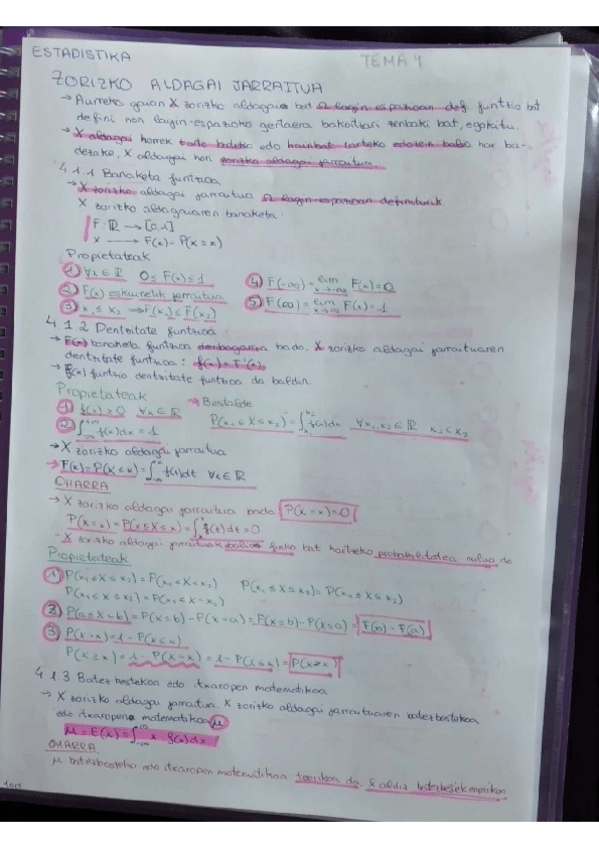 ESTADISTIKA
TEMA 4
ZORIZKO ALDAGAI JARRAITUA
→ Aurreko gaian X zorizko aldagaia bat Ω lagin espazioan def. funtzio bat
defini non lagin-espazioko gertaera bakoitzari zenbaki bat, egokitu.
→ X aldagai horrek tarte bateko edo hainbat tarteko edozein balio har ba-
dezake, X aldagai hori zorizko aldagai jarraitua
4.1.1 Banaketa funtzioa
→ X zorizko aldagai jarraitua Ω lagin-espazioan definiturik
X zorizko aldagaiaren banaketa:
F: ℝ → [0,1]
x → F(x) = P(X ≤ x)
Propietateak
1 ∀x ∈ ℝ 0 ≤ F(x) ≤ 1
2 F(x) eskuinetik jarraitua
3 x₁ ≤ x₂ ⟹ F(x₁) ≤ F(x₂)
4 F(-∞) = lim x→-∞ F(x) = 0
5 F(∞) = lim x→∞ F(x) = 1
4.1.2 Dentsitate funtzioa
→ F(x) banaketa funtzioa deribagarria bada, X zorizko aldagai jarraituaren
dentsitate funtzioa: f(x) = F'(x)
→ f(x) funtzio dentsitate funtzioa da baldin.
Propietateak
1 f(x) ≥ 0 ∀x ∈ ℝ
2 ∫_{-∞}^{+∞} f(x)dx = 1
→ Bestalde
P(x₁ ≤ X ≤ x₂) = ∫_{x₁}^{x₂} f(x)dx ∀x₁,x₂ ∈ ℝ x₁ < x₂
→ X zorizko aldagai jarraitua
→ F(x) = P(X ≤ x) = ∫_{-∞}^{x} f(t)dt ∀x ∈ ℝ
OHARRA
→ X zorizko aldagai jarraitua bada P(X = x) = 0
P(X = x) = P(x ≤ X ≤ x) = ∫_{x}^{x} f(t)dt = 0
- X zorizko aldagai jarraituak balio finko bat hartzeko probabilitatea nulua da
Propietateak
1 P(x₁ ≤ X ≤ x₂) = P(x₁ < X < x₂) P(x₁ ≤ X ≤ x₂) = P(x₁ < X ≤ x₂)
P(x₁ ≤ X ≤ x₂) = P(x₁ ≤ X < x₂)
2 P(a ≤ X ≤ b) = P(X ≤ b) - P(X < a) = P(X ≤ b) - P(X ≤ a) = F(b) - F(a)
3 P(X > x) = 1 - P(X ≤ x)
P(X ≥ x) = 1 - P(X < x) = 1 - P(X ≤ x) = P(X > x)
4.1.3 Batez bestekoa edo itxaropen matematikoa
→ X zorizko aldagai jarraitua. X zorizko aldagai jarraituaren batezbestekoa
edo itxaropena matematikoa μ
μ = E(X) = ∫_{-∞}^{∞} x f(x)dx
OHARRA
μ batezbesteko edo itxaropen matematikoa teorikoa da, x̄ aldiz batezbesteko enpirikoa